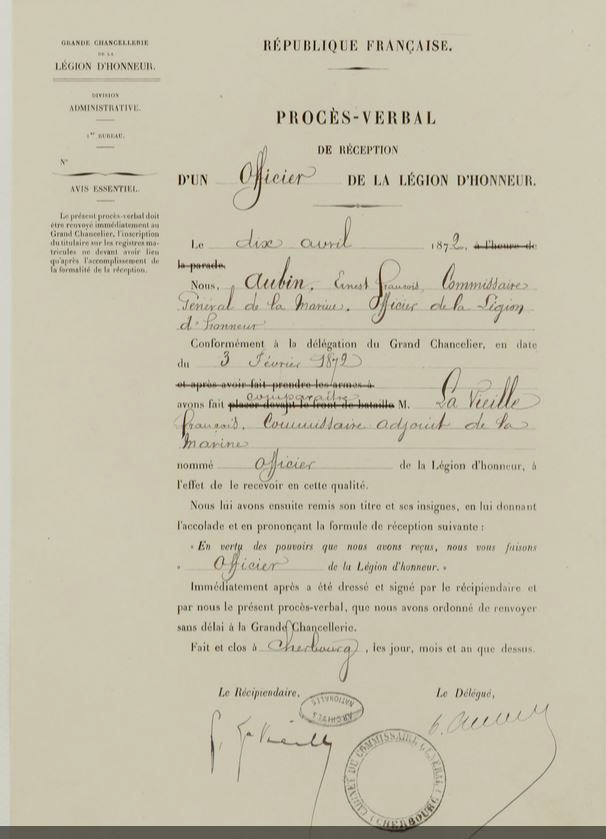 GRANDE CHANCELLERIE
DE LA
LÉGION D'HONNEUR.
DIVISION
ADMINISTRATIVE.
1er BUREAU.
N°
AVIS ESSENTIEL.
Le présent procès-verbal doit
être renvoyé immédiatement au
Grand Chancelier, l'inscription
du titulaire sur les registres ma-
tricules ne devant avoir lieu
qu'après l'accomplissement de
la formalité de la réception.
RÉPUBLIQUE FRANÇAISE.
PROCÈS-VERBAL
DE RÉCEPTION
D'UN Officier DE LA LÉGION D'HONNEUR.
Le dix avril 1872, à l'heure de
la parade.
Nous, Aubin, Ernest françois, Commissaire
Général de la Marine, Officier de la Légion
d'honneur
Conformément à la délégation du Grand Chancelier, en date
du 3 Février 1872
et après avoir fait prendre les armes à
comparaître
avons fait placer devant le front de bataille M. La Vieille
françois, Commissaire adjoint de la
Marine
nommé officier de la Légion d'honneur, à
l'effet de le recevoir en cette qualité.
Nous lui avons ensuite remis son titre et ses insignes, en lui donnant
l'accolade et en prononçant la formule de réception suivante :
« En vertu des pouvoirs que nous avons reçus, nous vous faisons
« Officier de la Légion d'honneur. »
Immédiatement après a été dressé et signé par le récipiendaire et
par nous le présent procès-verbal, que nous avons ordonné de renvoyer
sans délai à la Grande Chancellerie.
Fait et clos à Cherbourg, les jour, mois et an que dessus.
Le Récipiendaire,
Le Délégué,
ARCHIVES NATIONALES
f. La Vieille
E. Aubin
CABINET DU COMMISSAIRE GÉNÉRAL
CHERBOURG